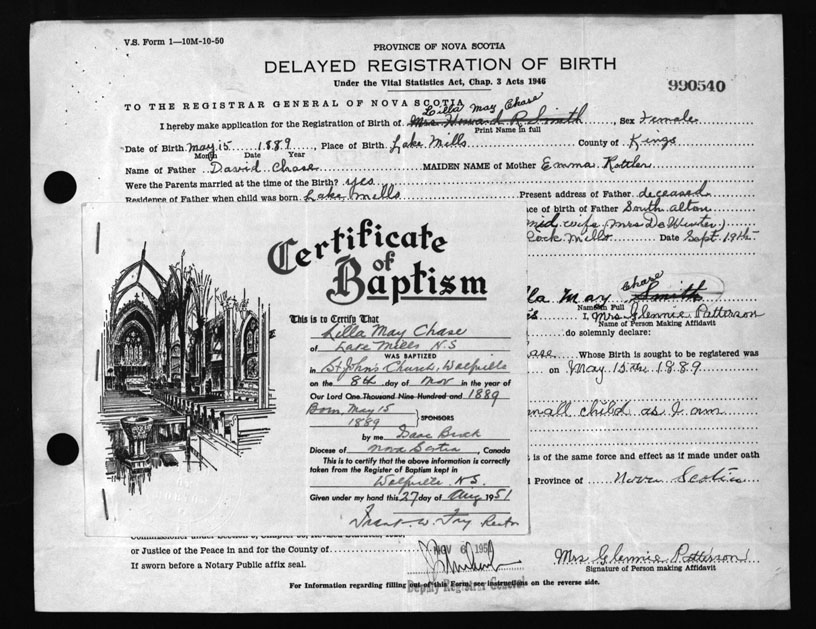 V.S. Form 1—10M-10-50
PROVINCE OF NOVA SCOTIA
DELAYED REGISTRATION OF BIRTH
Under the Vital Statistics Act, Chap. 3 Acts 1946
990540
TO THE REGISTRAR GENERAL OF NOVA SCOTIA
Lilla May Chase
I hereby make application for the Registration of Birth of Mrs Howard R. Smith, Sex Female
Print Name in full
Date of Birth May 15 1889, Place of Birth Lake Mills County of Kings
Month Date Year
Name of Father David Chase MAIDEN NAME of Mother Emma
Were the Parents married at the time of the Birth? yes Present address of Father deceased
Residence of Father when child was born Lake Mills ce of birth of Father South alton
mid wife, Mrs De
Mills Date Sept 19
Certificate
of
Baptism
This is to Certify That
Lilla May Chase
of Lake Mills N.S
WAS BAPTIZED
in St John's Church,
on the 8th day of Nov in the year of
Our Lord One Thousand Nine Hundred and 1889
Born, May 15
1889 SPONSORS
by me Isaac Brock
Diocese of Nova Scotia, Canada
This is to certify that the above information is correctly
taken from the Register of Baptism kept in
N.S.
Given under my hand this 27 day of Aug 1951
Frank W. Rector
Chase
lla May Smith
Name in Full
I, Mrs Glennie Patterson
Name of Person Making Affidavit
do solemnly declare:
ase Whose Birth is sought to be registered was
on May 15th 1889
small child as I am
t is of the same force and effect as if made under oath
Province of Nova Scotia
or Justice of the Peace in and for the County of
If sworn before a Notary Public affix seal.
NOV 6 195
Deputy Registrar General
Mrs Glennie Patterson
Signature of Person making Affidavit
For Information regarding filling out of this Form, see instructions on the reverse side.